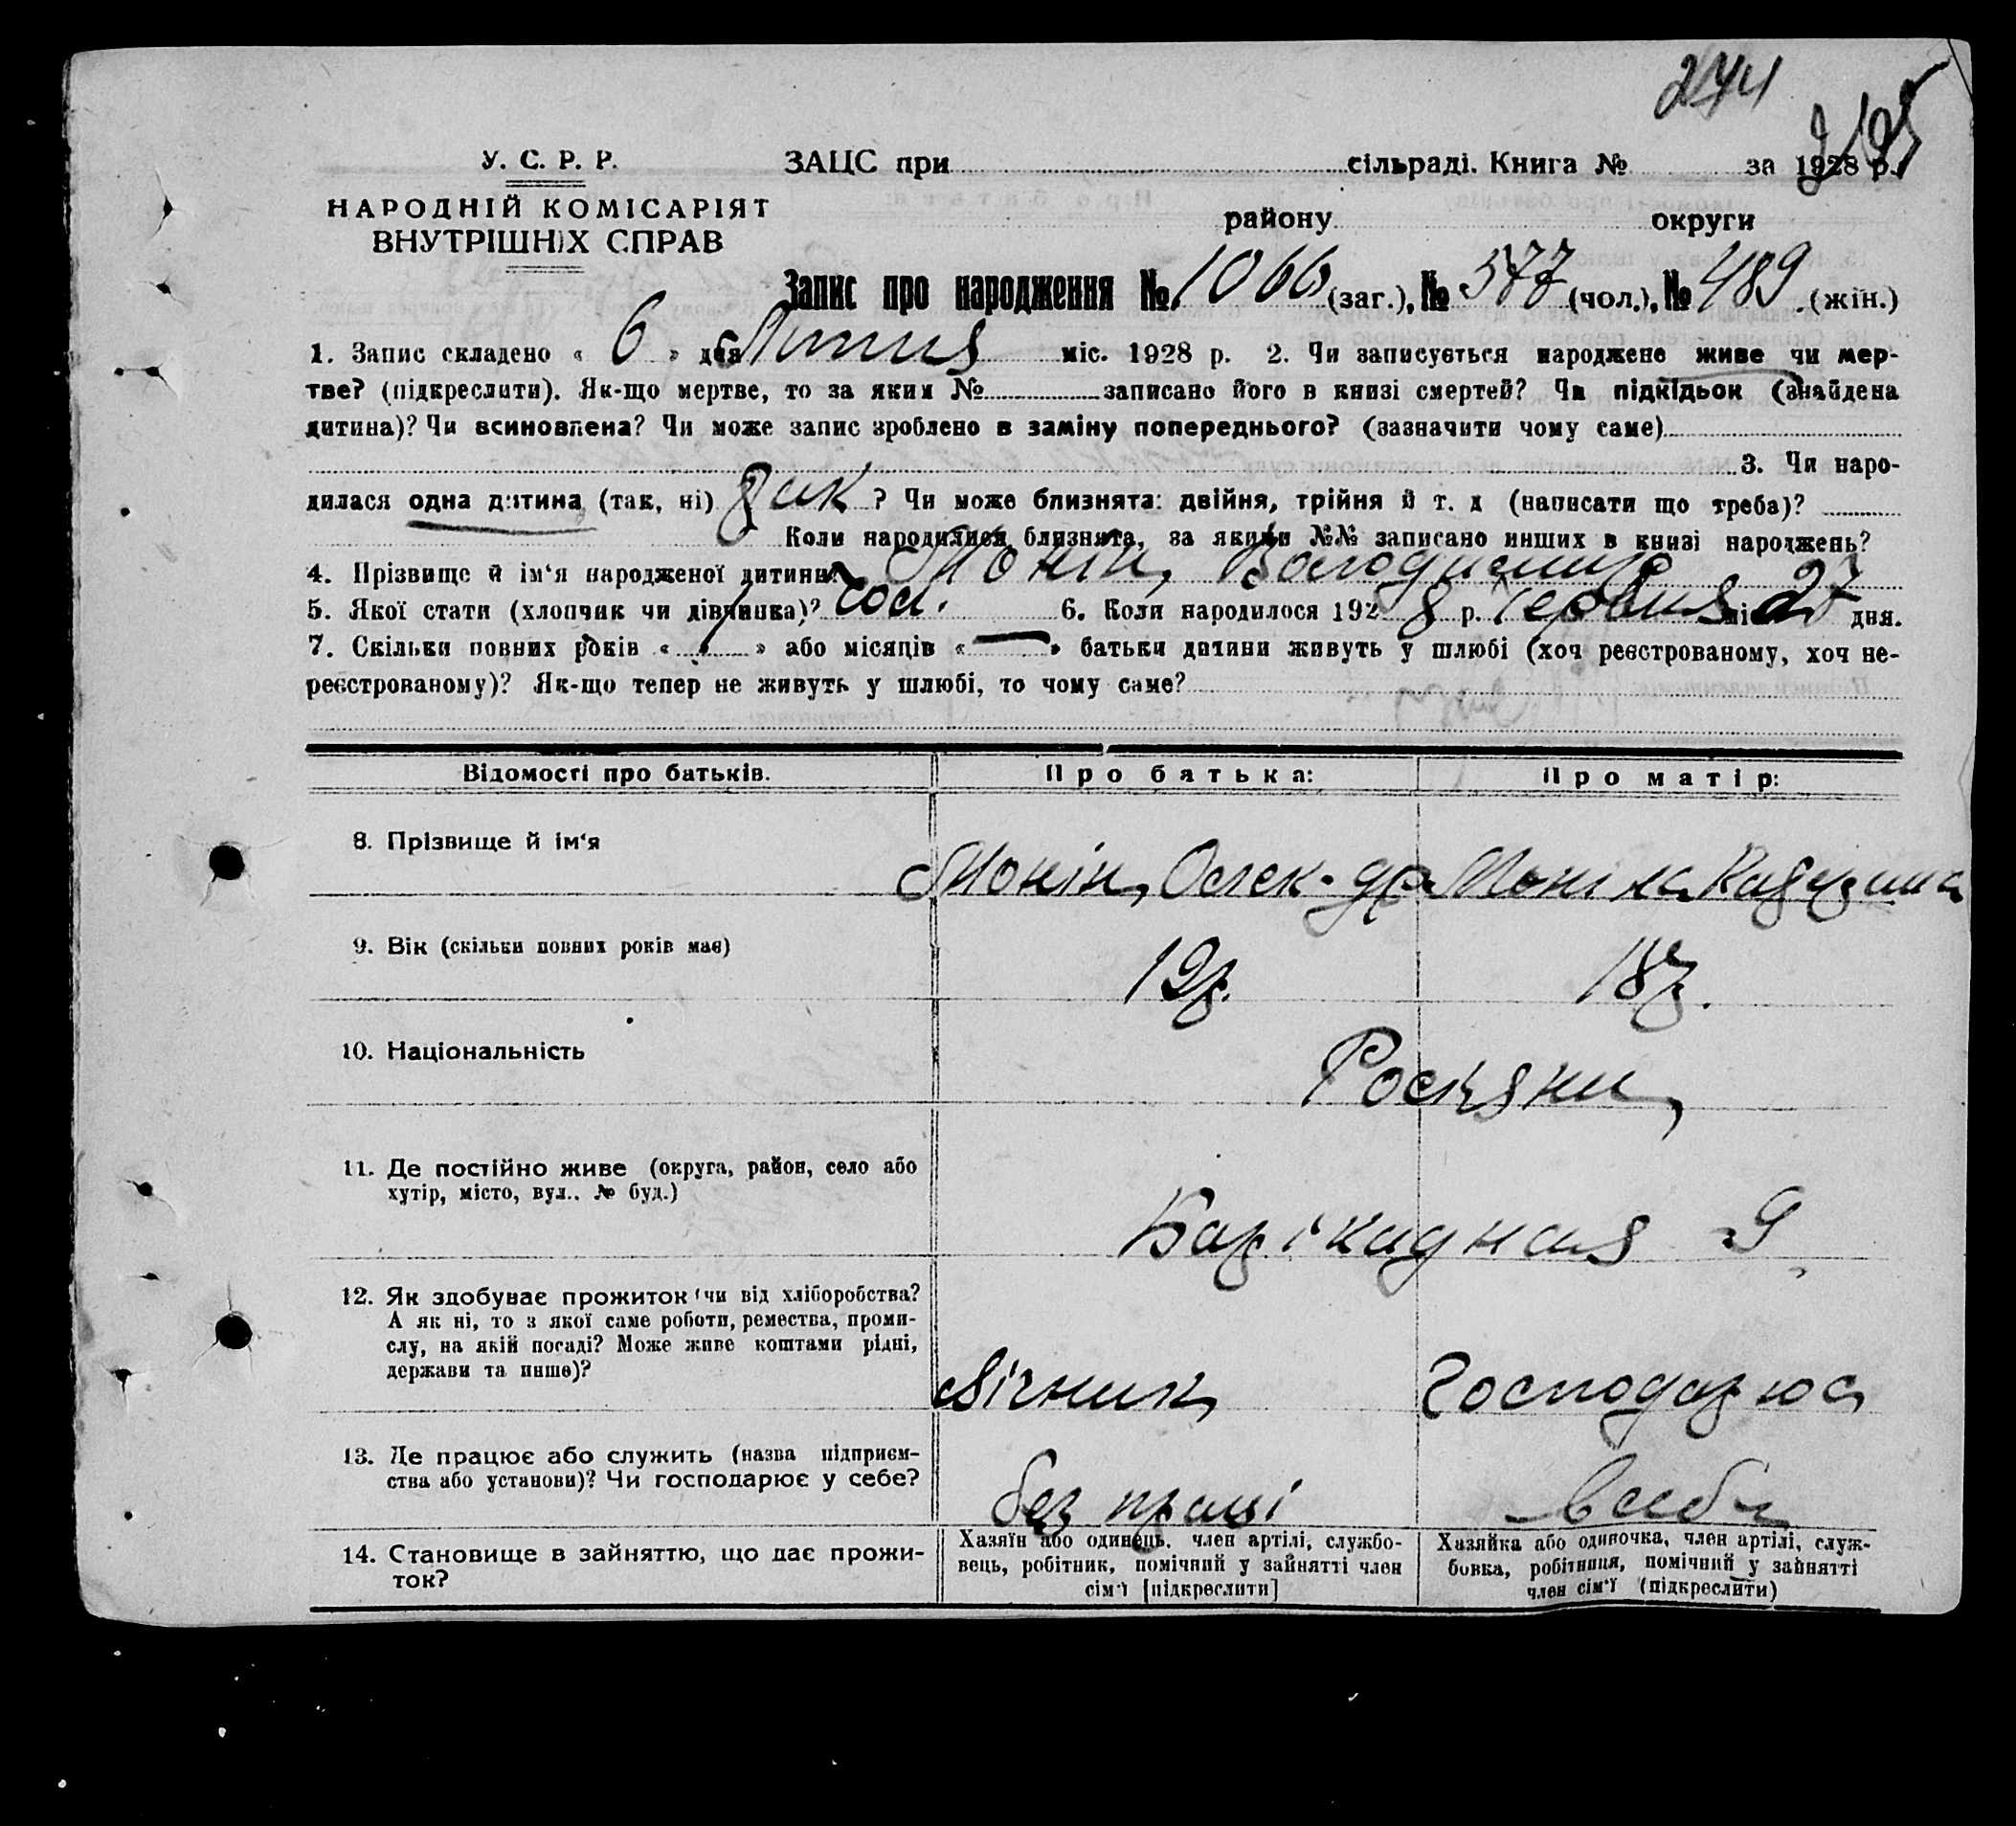 274
У. С. Р. Р.
ЗАЦС при сільраді. Книга № за 1928 р.
НАРОДНІЙ КОМІСАРІЯТ
ВНУТРІШНІХ СПРАВ
району округи
Запис про народження № 1066 (заг.), № 577 (чол.), № 489 (жін.)
1. Запис складено « 6 » дня Липня міс. 1928 р. 2. Чи записується народжене живе чи мер-
тве? (підкреслити). Як-що мертве, то за яким № записано його в книзі смертей? Чи підкідьок (знайдена
дитина)? Чи всиновлена? Чи може запис зроблено в заміну попереднього? (зазначити чому саме)
3. Чи наро-
дилася одна дитина (так, ні) так ? Чи може близнята: двійня, трійня й т. д (написати що треба)?
Коли народилися близнята, за якими №№ записано инших в книзі народжень?
4. Прізвище й ім'я народженої дитини? Монін, Володимир
5. Якої стати (хлопчик чи дівчинка)? чол. 6. Коли народилося 1928 р. Червня міс 27 дня.
7. Скільки повних років « 1 » або місяців « — » батьки дитини живуть у шлюбі (хоч реєстрованому, хоч не-
реєстрованому)? Як-що тепер не живуть у шлюбі, то чому саме?
Відомості про батьків. Про батька: Про матір:
8. Прізвище й ім'я Монін, Олек-др Моніна
9. Вік (скільки повних років має) 19р. 18р.
10. Національність Росіяни
11. Де постійно живе (округа, район, село або
хутір, місто, вул.. № буд.)
Барікадная 9
12. Як здобуває прожиток (чи від хліборобства?
А як ні, то з якої саме роботи, ремества, проми-
слу, на якій посаді? Може живе коштами рідні,
держави та инше)?
Лічник Господарює
13. Де працює або служить (назва підприєм-
ства або установи)? Чи господарює у себе?
без праці в себе
14. Становище в зайняттю, що дає прожи-
ток?
Хазяїн або одинець. член артілі, службо-
вець, робітник, помічний у зайнятті член
сім'ї [підкреслити]
Хазяйка або одиночка, член артілі, служ-
бовка, робітниця, помічний у зайнятті
член сім'ї (підкреслити)